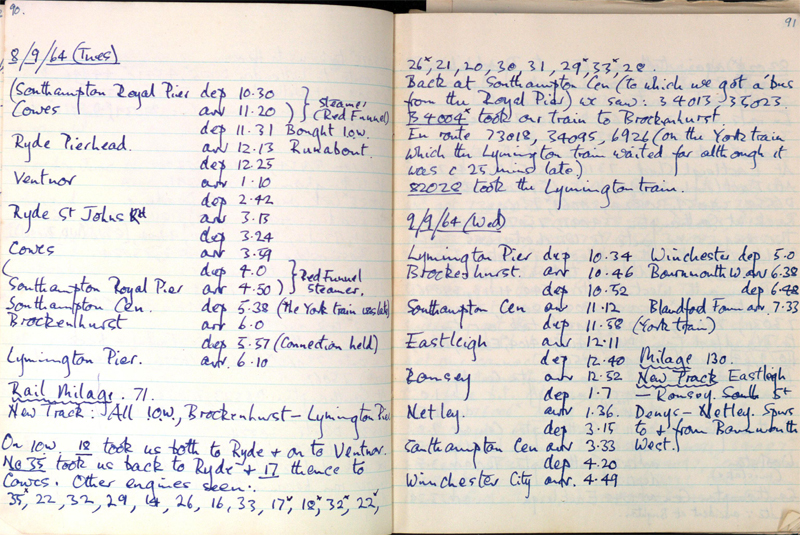 90.
8/9/64 (Tues)
(Southampton Royal Pier dep 10.30 } Steamer
Cowes arr 11.20 ) (Red Funnel)
dep 11.31 Bought I.O.W.
Ryde Pierhead. arr 12.13 Runabout.
dep 12.25
Ventnor arr 1.10
dep 2.42
Ryde St Johns Rd arr 3.13
dep 3.24
Cowes arr 3.59
( dep 4.0 } Red Funnel
Southampton Royal Pier arr 4.50 ) steamer.
Southampton Cen. dep 5.38 (the York train was late)
Brockenhurst arr 6.0
dep 5.57 (Connection held)
Lymington Pier. arr. 6.10
Rail Milage. 71.
New Track: All I.O.W., Brockenhurst – Lymington Pier
On I.O.W. 18 took us both to Ryde + on to Ventnor.
No 35 took us back to Ryde + 17 thence to
Cowes. Other engines seen:.
35*, 22, 32, 29, 14, 26, 16, 33, 17*, 18*, 32*, 22*,
91
26*, 21, 20, 30, 31, 29*, 33*, 28.
Back at Southampton Cen (to which we got a 'bus
from the Royal Pier) we saw: 34013, 35023.
34004* took our train to Brockenhurst.
En route 73018, 34095, 6926 (on the York train
which the Lymington train waited for although it
was c 25 mins late)
82028 took the Lymington train.
9/9/64 (Wed)
Lymington Pier dep 10.34 Winchester dep 5.0
Brockenhurst. arr 10.46 Bournmouth W. arr 6.38
dep 10.52 dep 6.48
Southampton Cen arr 11.12 Blandford Forum arr. 7.33
dep 11.58 (York train)
Eastleigh arr 12.11
dep 12.40 Milage 130.
Romsey arr 12.52 New Track Eastleigh
dep 1.7 – Romsey. South St
Netley. arr 1.36. Denys – Netley. Spurs
dep 3.15 to + from Bournmouth
Southampton Cen arr 3.33 West.
dep 4.20
Winchester City arr. 4.49